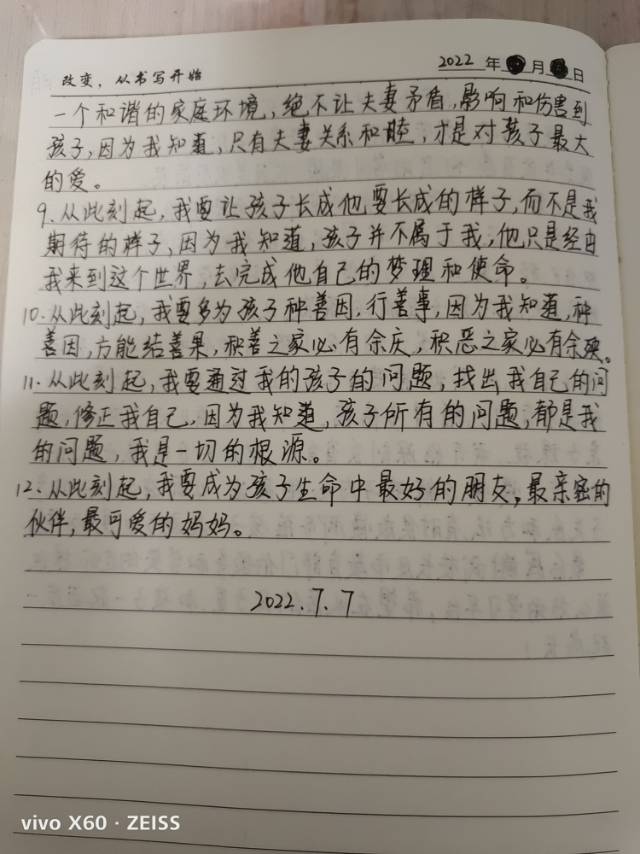 改变，从书写开始
2022 年 月 日
一个和谐的家庭环境，绝不让夫妻矛盾，影响和伤害到
孩子，因为我知道，只有夫妻关系和睦，才是对孩子最大
的爱。
9.从此刻起，我要让孩子长成他要长成的样子，而不是我
期待的样子，因为我知道，孩子并不属于我，他只是经由
我来到这个世界，去完成他自己的梦理和使命。
10.从此刻起，我要多为孩子种善因，行善事，因为我知道，种
善因，方能结善果，积善之家必有余庆，积恶之家必有余殃。
11.从此刻起，我要通过我的孩子的问题，找出我自己的问
题，修正我自己，因为我知道，孩子所有的问题，都是我
的问题，我是一切的根源。
12.从此刻起，我要成为孩子生命中最好的朋友，最亲密的
伙伴，最可爱的妈妈。
2022.7.7
vivo X60 · ZEISS